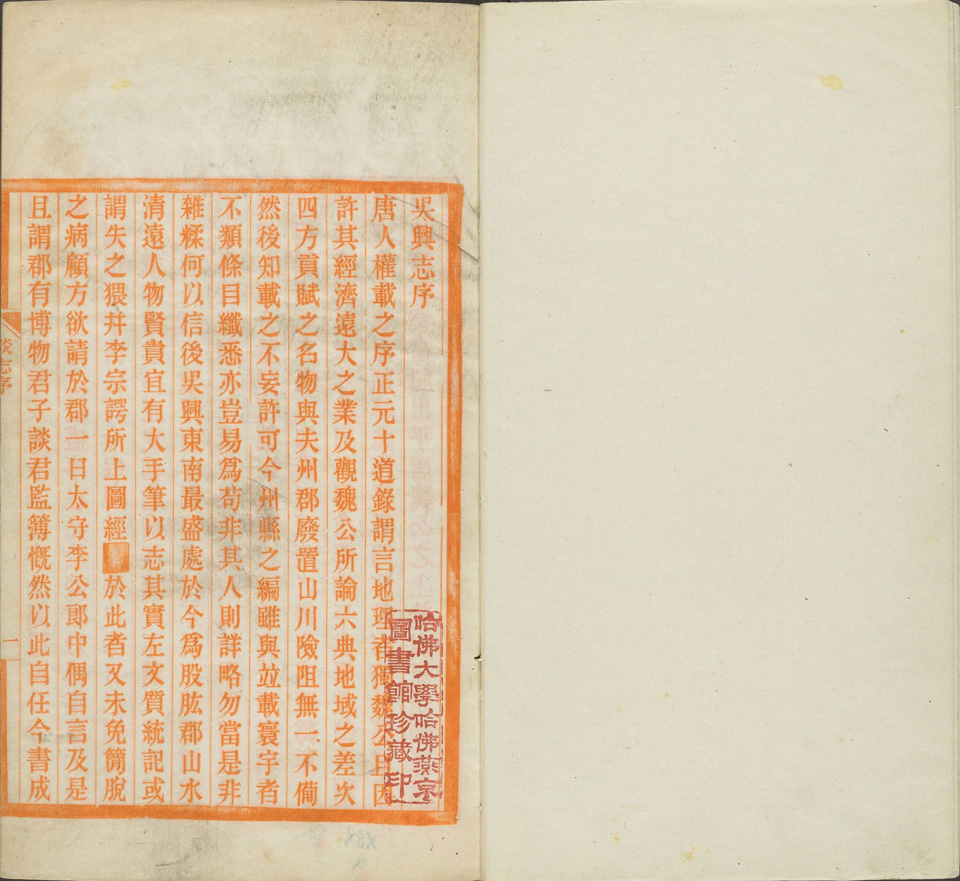 吳興志序
唐人權載之序正元十道錄謂言地理者獨魏公且因
許其經濟遠大之業及觀魏公所論六典地域之差次
四方貢賦之名物與夫州郡廢置山川險阻無一不備
然後知載之不妄許可今州縣之編雖與竝載寰宇者
不類條目纖悉亦豈易爲苟非其人則詳略勿當是非
雜糅何以信後吳興東南最盛處於今爲股肱郡山水
清遠人物賢貴宜有大手筆以志其實左文質統記或
謂失之猥幷李宗諤所上圖經於此者又未免簡脫
之病顧方欲請於郡一日太守李公郎中偶自言及是
且謂郡有博物君子談君監簿慨然以此自任今書成
談志序
一
哈佛大學哈佛燕京
圖書館珍藏印